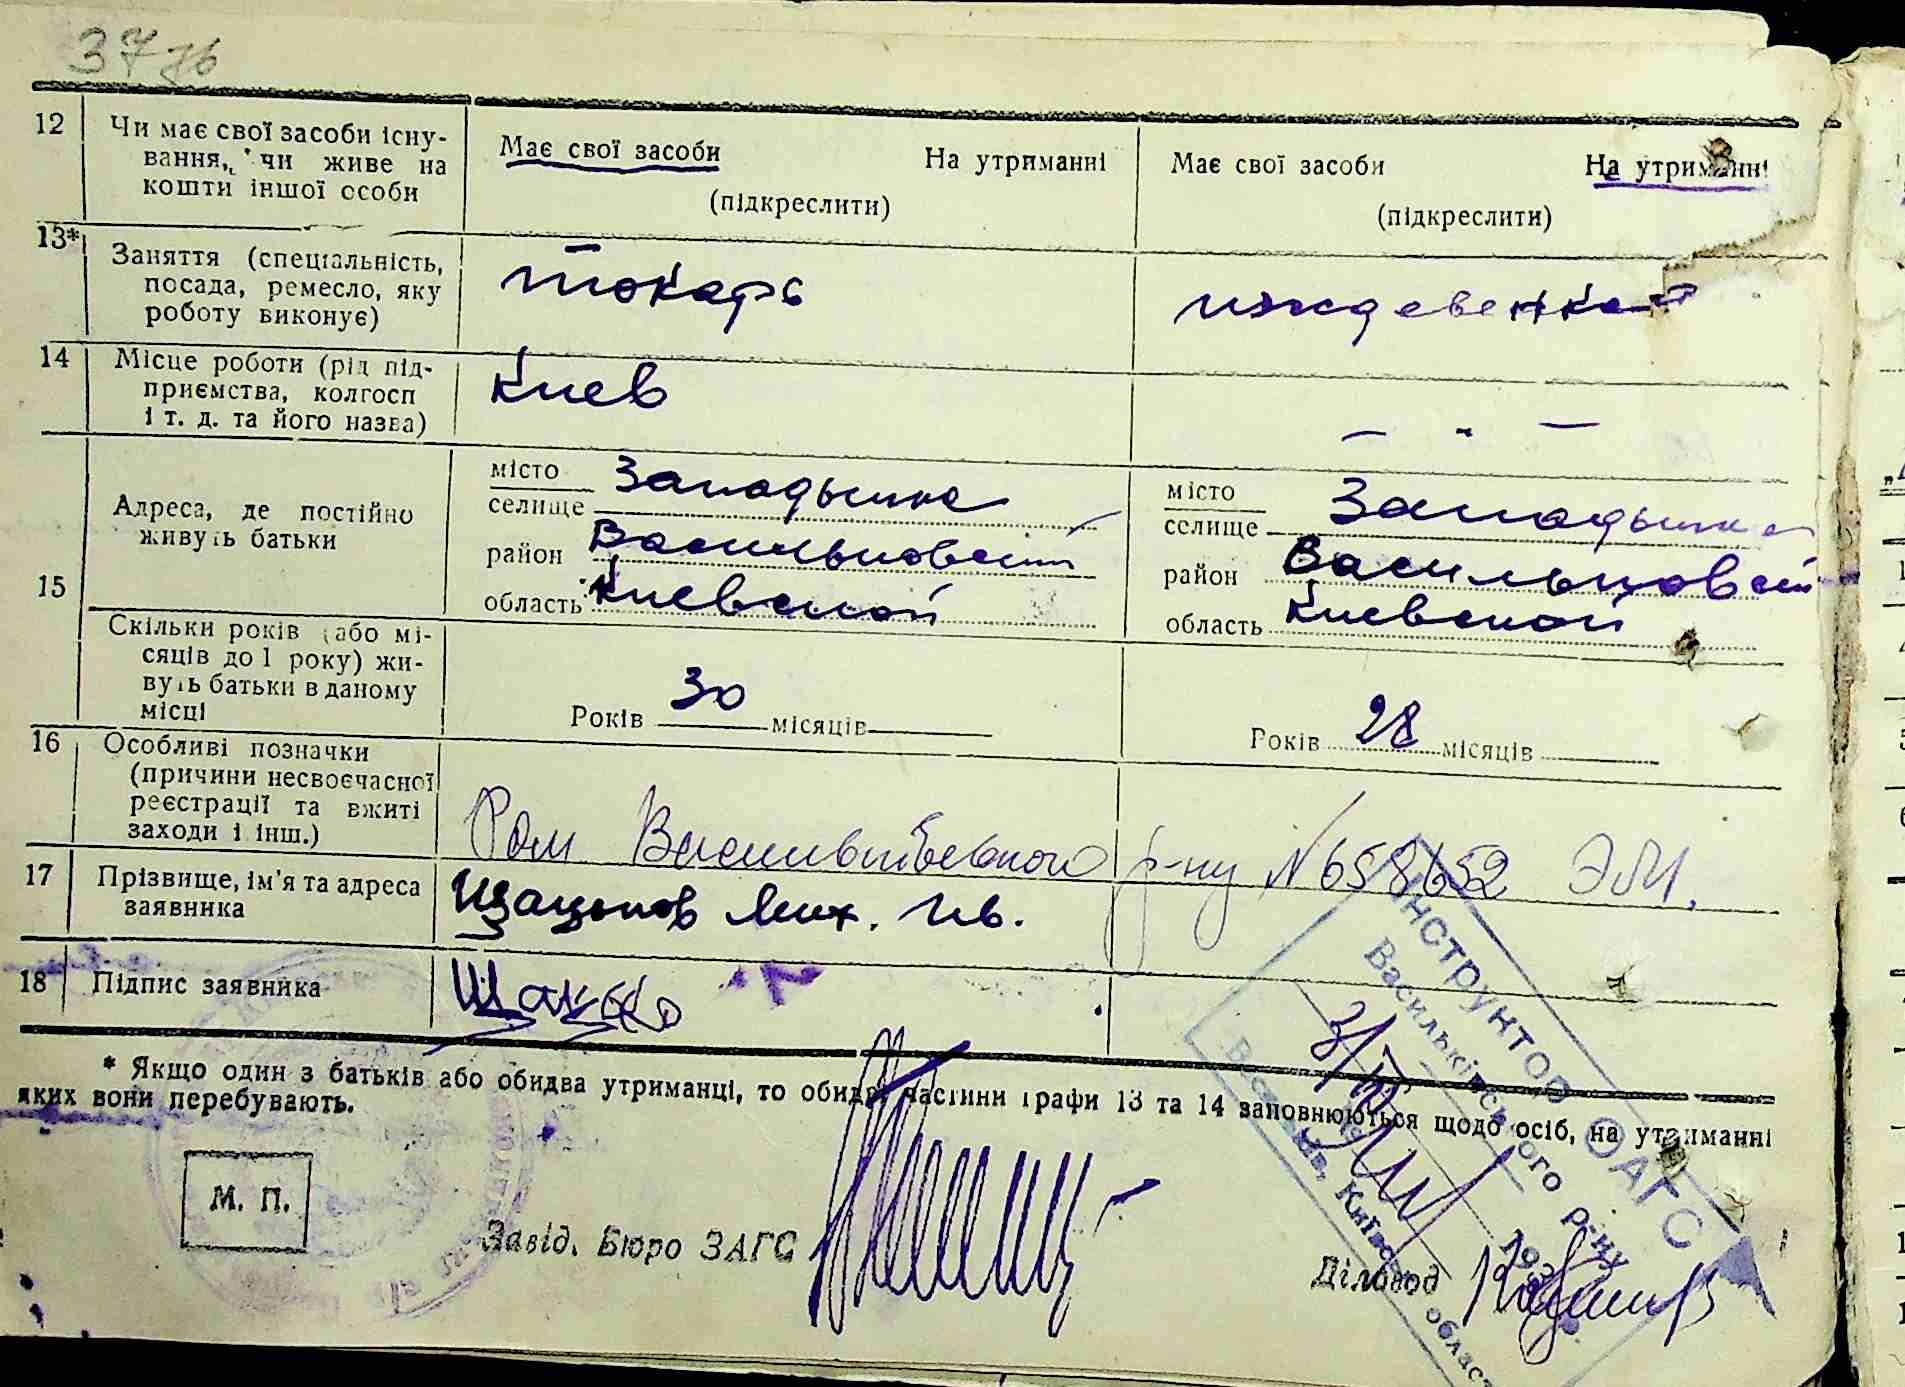 37
12 Чи має свої засоби існу-
вання, чи живе на
кошти іншої особи
Має свої засоби На утриманні
(підкреслити)
Має свої засоби На утриманні
(підкреслити)
13* Заняття (спеціальність,
посада, ремесло, яку
роботу виконує)
токарь
иждевенка
14 Місце роботи (рід під-
приємства, колгосп
і т. д. та його назва)
Киев
— " —
15 Адреса, де постійно
живуть батьки
місто
селище Западынка
район Васильковский
область Киевской
місто
селище Западынка
район Васильковский
область Киевской
Скільки років (або мі-
сяців до 1 року) жи-
вуть батьки в даному
місці
Років 30 місяців
Років 28 місяців
16 Особливі позначки
(причини несвоєчасної
реєстрації та вжиті
заходи і інш.)
Васильківського р-ну № 658652
17 Прізвище, ім'я та адреса
заявника
Мих. Ив.
18 Підпис заявника
* Якщо один з батьків або обидва утриманці, то обидві частини графи 13 та 14 заповнюються щодо осіб, на утриманні
яких вони перебувають.
М. П.
Завід. Бюро ЗАГС
Діловод
Інструктор ОАГС
Васильківського р-ну
Васильків, Київської област